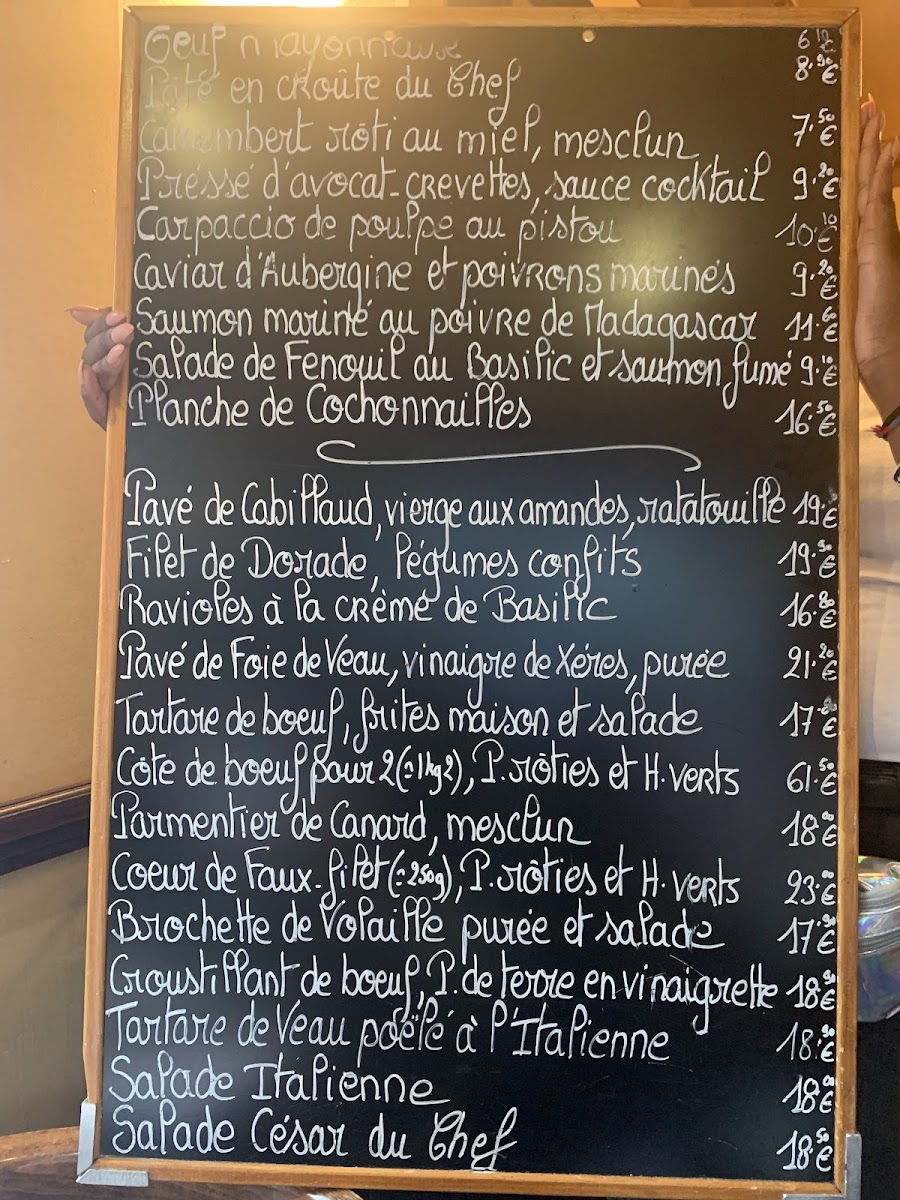 Oeuf mayonnaise 6.10€
Pâté en croûte du Chef 8.90€
Camembert rôti au miel, mesclun 7.50€
Préssé d'avocat-crevettes, sauce cocktail 9.20€
Carpaccio de poulpe au pistou 10.10€
Caviar d'Aubergine et poivrons marinés 9.20€
Saumon mariné au poivre de Madagascar 11.60€
Salade de Fenouil au Basilic et saumon fumé 9.10€
Planche de Cochonnailles 16.50€
Pavé de Cabillaud, vierge aux amandes, ratatouille 19. €
Filet de Dorade, légumes confits 19.90€
Ravioles à la crème de Basilic 16.80€
Pavé de Foie de Veau, vinaigre de Xérès, purée 21.20€
Tartare de boeuf, frites maison et salade 17.80€
Côte de boeuf pour 2 (≃1kg2), P. rôties et H. verts 61.50€
Parmentier de Canard, mesclun 18. €
Coeur de Faux-filet (≃250g), P. rôties et H. verts 23.00€
Brochette de Volaille purée et salade 17.90€
Croustillant de boeuf, P. de terre en vinaigrette 18.90€
Tartare de Veau poëlé à l'Italienne 18.90€
Salade Italienne 18.00€
Salade César du Chef 18.50€